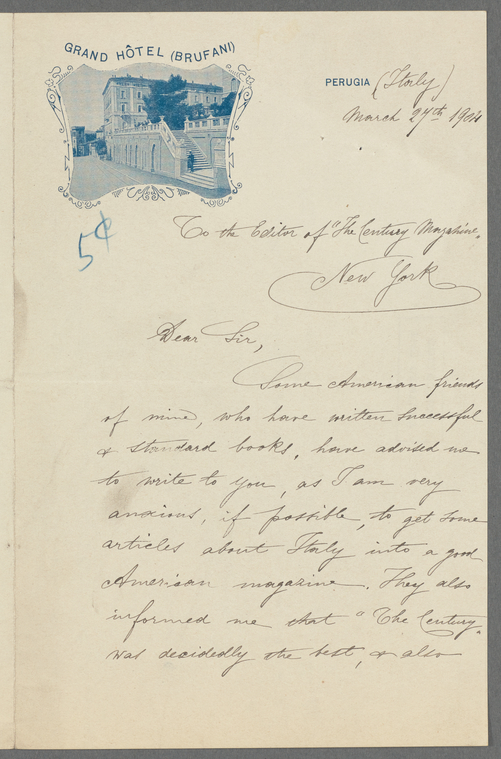 GRAND HÔTEL (BRUFANI)
PERUGIA (Italy)
March 27th 1904
5¢
To the Editor of "The Century Magazine.
New York
Dear Sir,
Some American friends
of mine, who have written successful
& standard books, have advised me
to write to you, as I am very
anxious, if possible, to get some
articles about Italy into a good
American magazine. They also
informed me that "The Century"
was decidedly the best, & also